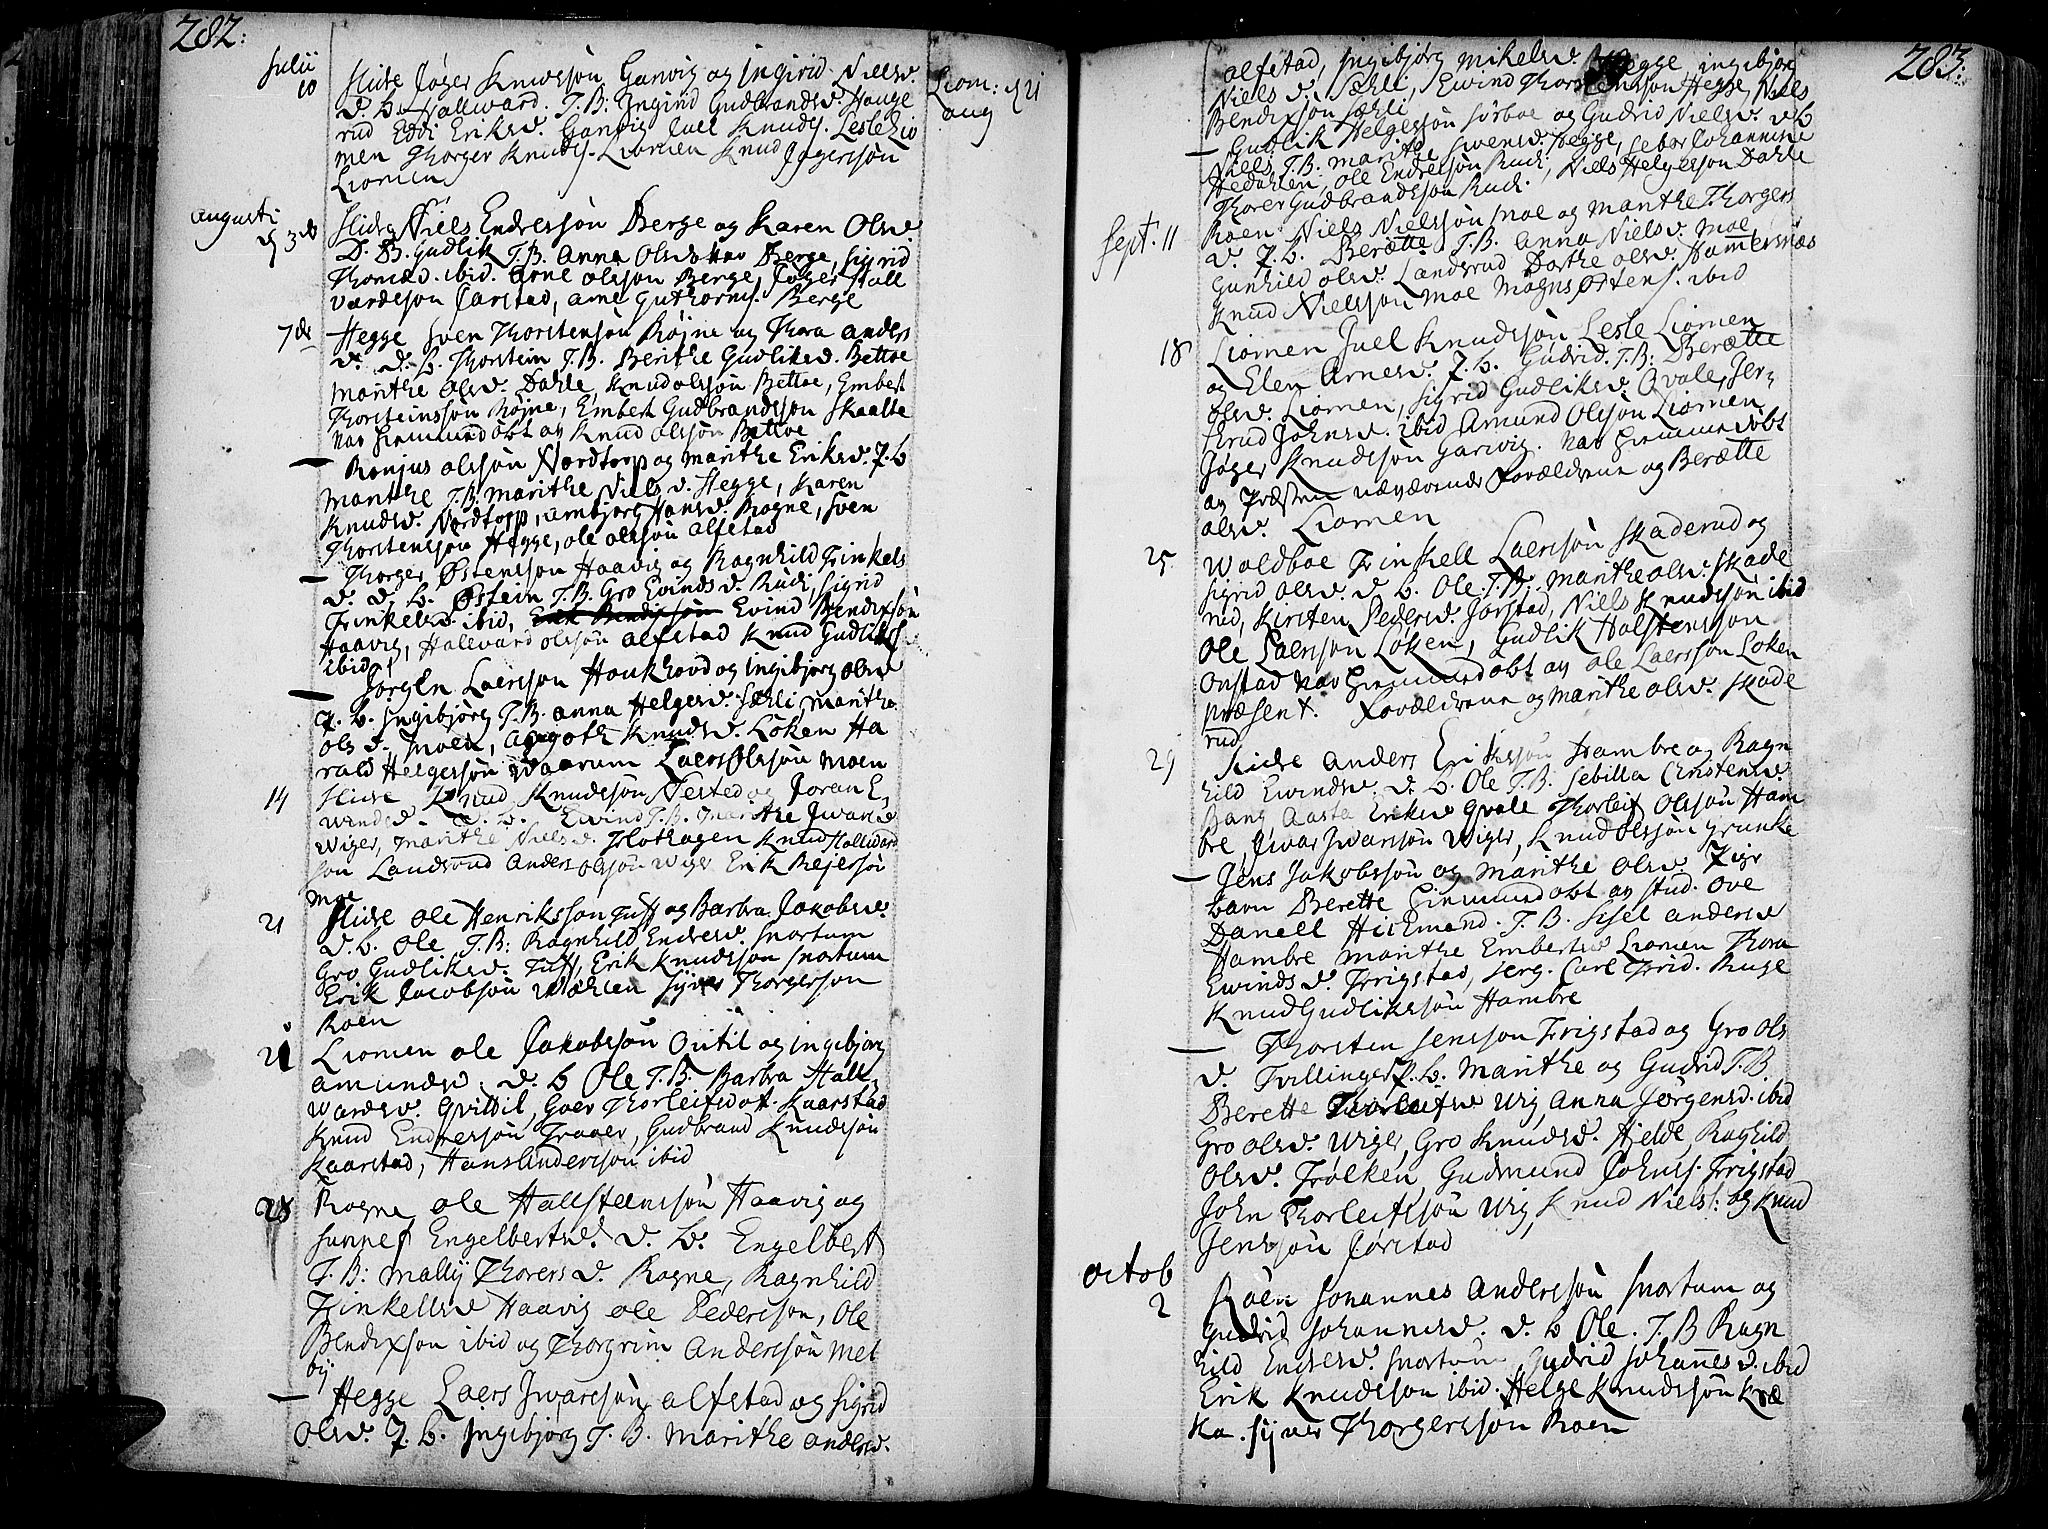 282:
Julii
10
Slidre Jøger Knudssøn Garvig og Ingirid Nielsd.
d. b. Hallward. T.B: Ingirid Gudbrandsd. Hauge
rud Eddi Eriksd. Garvig Juel Knuds. Lesle Lio
men Thorger Knuds. Liomen Knud Jøgerssøn
Liomen
Liom: d 21
aug
Augusti
d 3de
Slidre Niels Endressøn Berge og Karen Olsd.
D. B. Gudlik T.B. Anna Olsd. Berge, Sigrid
Thomæd. ibid. Arne Olsson Berge, Jøger Hall
vardssøn Jarstad, Arne Guthorms. Berge
7de
Hegge Sven Thorstensøn Røjne og Thora Anders
d. d. b. Thorstein T.B. Berithe Gudliksd. Bettoe
Marithe Olsd. Dahle, Knud Olssøn Bettoe, Embert
Thorsteinssøn Røjne, Embert Gudbrandssøn Skaatte
Nav hiemmedøbt av Knud Olssøn Bettoe
— Ronjus Olssøn Nordtorp og Marithe Eriksd. P. b
Marithe T.B. Marithe Niels d. Hegge, Karen
Knudsd. Nordtorp, Ambjørg Hansd. Rogne, Sven
Thorstenssøn Hegge, Ole Olssøn Alfstad
— Thorger Østenssøn Haavig og Ragnhild Finkels
d. d. b. Østein T.B. Gro Evinds d. Rudi Sigrid
Finkelsd. ibid, Erik Bendixsøn Evind Bendixsøn
Haavig, Halvard Olssøn Alfstad Knud Gudliks
ibid
— Jørgen Laerssøn Haukhovd og Ingibjørg Olsd
P. b. Ingibjørg T.B. Anna Helgesd. Sæhli, Marithe
Ols d. Moen, Aagoth Knudsd. Løken Ha
rald Helgessøn Waarum Laers Olssøn Moen
14
Slidre Knud Knudssøn Nested og Joran E
windsd. d. b. Ewind T.B. Marithe Iwarsd
Wiger, Marithe Niels d. Hothagen Knud Hallward
søn Landsrud Anders Olssøn Wiger Erik Rejerssøn
Moe
21
Slidre Ole Henrikssøn Tuff og Barbra Jakobsd.
d. b. Ole T.B: Ragnhild Endresd. Snortum
Gro Gudliksd. Tuff, Erik Knudssøn Snortum
Erik Jacobsøn Wæhlen Syver Thorgerson
Roen
21
Liomen Ole Jakobssøn Qvitil og Ingibjørg
Amundsd. d. b Ole T.B. Barbra Hall
wardsd. Qvittil, Goer Thorleifsdott. Kaarstad
Knud Endressøn Fraaer, Gudbrand Knudssøn
Kaarstad, Hans Anderssøn ibid
28
Rogne Ole Hallsteenssøn Haavig og
Sunnef Engelbertsd. d. b. Engelbert
T.B: Mally Thorers d. Rogne, Ragnhild
Finkellsd Haavig Ole Pederssøn, Ole
Bendixson ibid og Thorgrim Anderssøn Mel
by
— Hegge Laers Iwarssøn Alfstad og Sigrid
Olsd. P. b. Ingibjørg T.B. Marithe Andersd.
283:
Alfstad, Ingibjørg Mikelsd. Hegge Ingibjør
Niels d. Sæhli, Ewind Thorstenssøn Hegge, Niels
Bendixsøn Sæhli
— Gudlik Helgessøn Sørboe og Gudrid Nielsd. d b
Niels T.B: Marithe Swensd. Hegge, Sebør Johannisd
Hedahlen, Ole Endressøn Rudi, Niels Helgessøn Dahle
Thorer Gudbrandssøn Rudi.
Sept. 11
Roen Niels Nielssøn Moe og Marithe Thorgers
d. P. b. Berætte T.B. Anna Niels d. Moe
Gunhild Olsd. Landsrud Dorthe Olsd. Hammersnæs
Knud Nielssøn Moe Magns Østens. ibid
18
Liomen Juel Knudssøn Lesle Liomen
og Elen Arnesd. P. b. Gudrid. T.B: Berætte
Olsd. Liomen, Sigrid Gudliksd. Qvale, Jer
trud Johnsd. ibid Amund Olssøn Liomen
Jøger Knudssøn Garvig. Nav hiemmedøbt
av Præsten nærværende Forældrene og Berætte
Olsd. Liomen
25
Woldboe Finkell Laerssøn Skaderud og
Sigrid Olsd. d. b. Ole. T.B. Marithe Olsd. Skade
rud, Kirsten Pedersd. Jorstad, Niels Knudssøn ibid
Ole Laerssøn Løken, Gudlik Halstenssøn
Onstad Nav hiemmedøbt av Ole Laerssøn Løken
præsent. Forældrene og Marithe Olsd. Skade
rud
29
Slidre Anders Erikssøn Hambre og Ragn
hild Ewindsd. d. b. Ole T.B: Sebilla Christensd
Bang Aasta Eriksd Qvale Thorleif Olssøn Ham
bre, Iwar Iwarssøn Wiger, Knud Olssøn Grunke
— Jens Jakobssøn og Marithe Olsd. Pige
barn Berette hiemmedøbt av Stud. Ove
Daniell Hiermand. T.B. Sisel Andersd
Hambre Marithe Embertsd Liomen Thora
Ewinds d. Frigstad, Serg. Carl Frid. Ruge
Knud Gudlikssøn Hambre
— Thorsten Jenssøn Frigstad og Gro Ols
d. Tvillinger P. b. Marithe og Gudrid T.B
Berette Thorleifsd Wig, Anna Jørgensd. ibid
Gro Olsd. Wiger, Gro Knudsd. Hielde Raghild
Olsd. Frølken Gudmund Johns. Frigstad
John Thorleifssøn Wig, Knud Niels: og Knud
Jenssøn Jørstad
Octob
2
Roen Johannes Anderssøn Snortum og
Gudrid Johannesd. d. b Ole. T.B Ragn
hild Endresd. Snortum, Gudrid Johannes d. ibid
Erik Knudssøn ibid. Helge Knudssøn Kræ
ka. Syver Thorgerssøn Roen